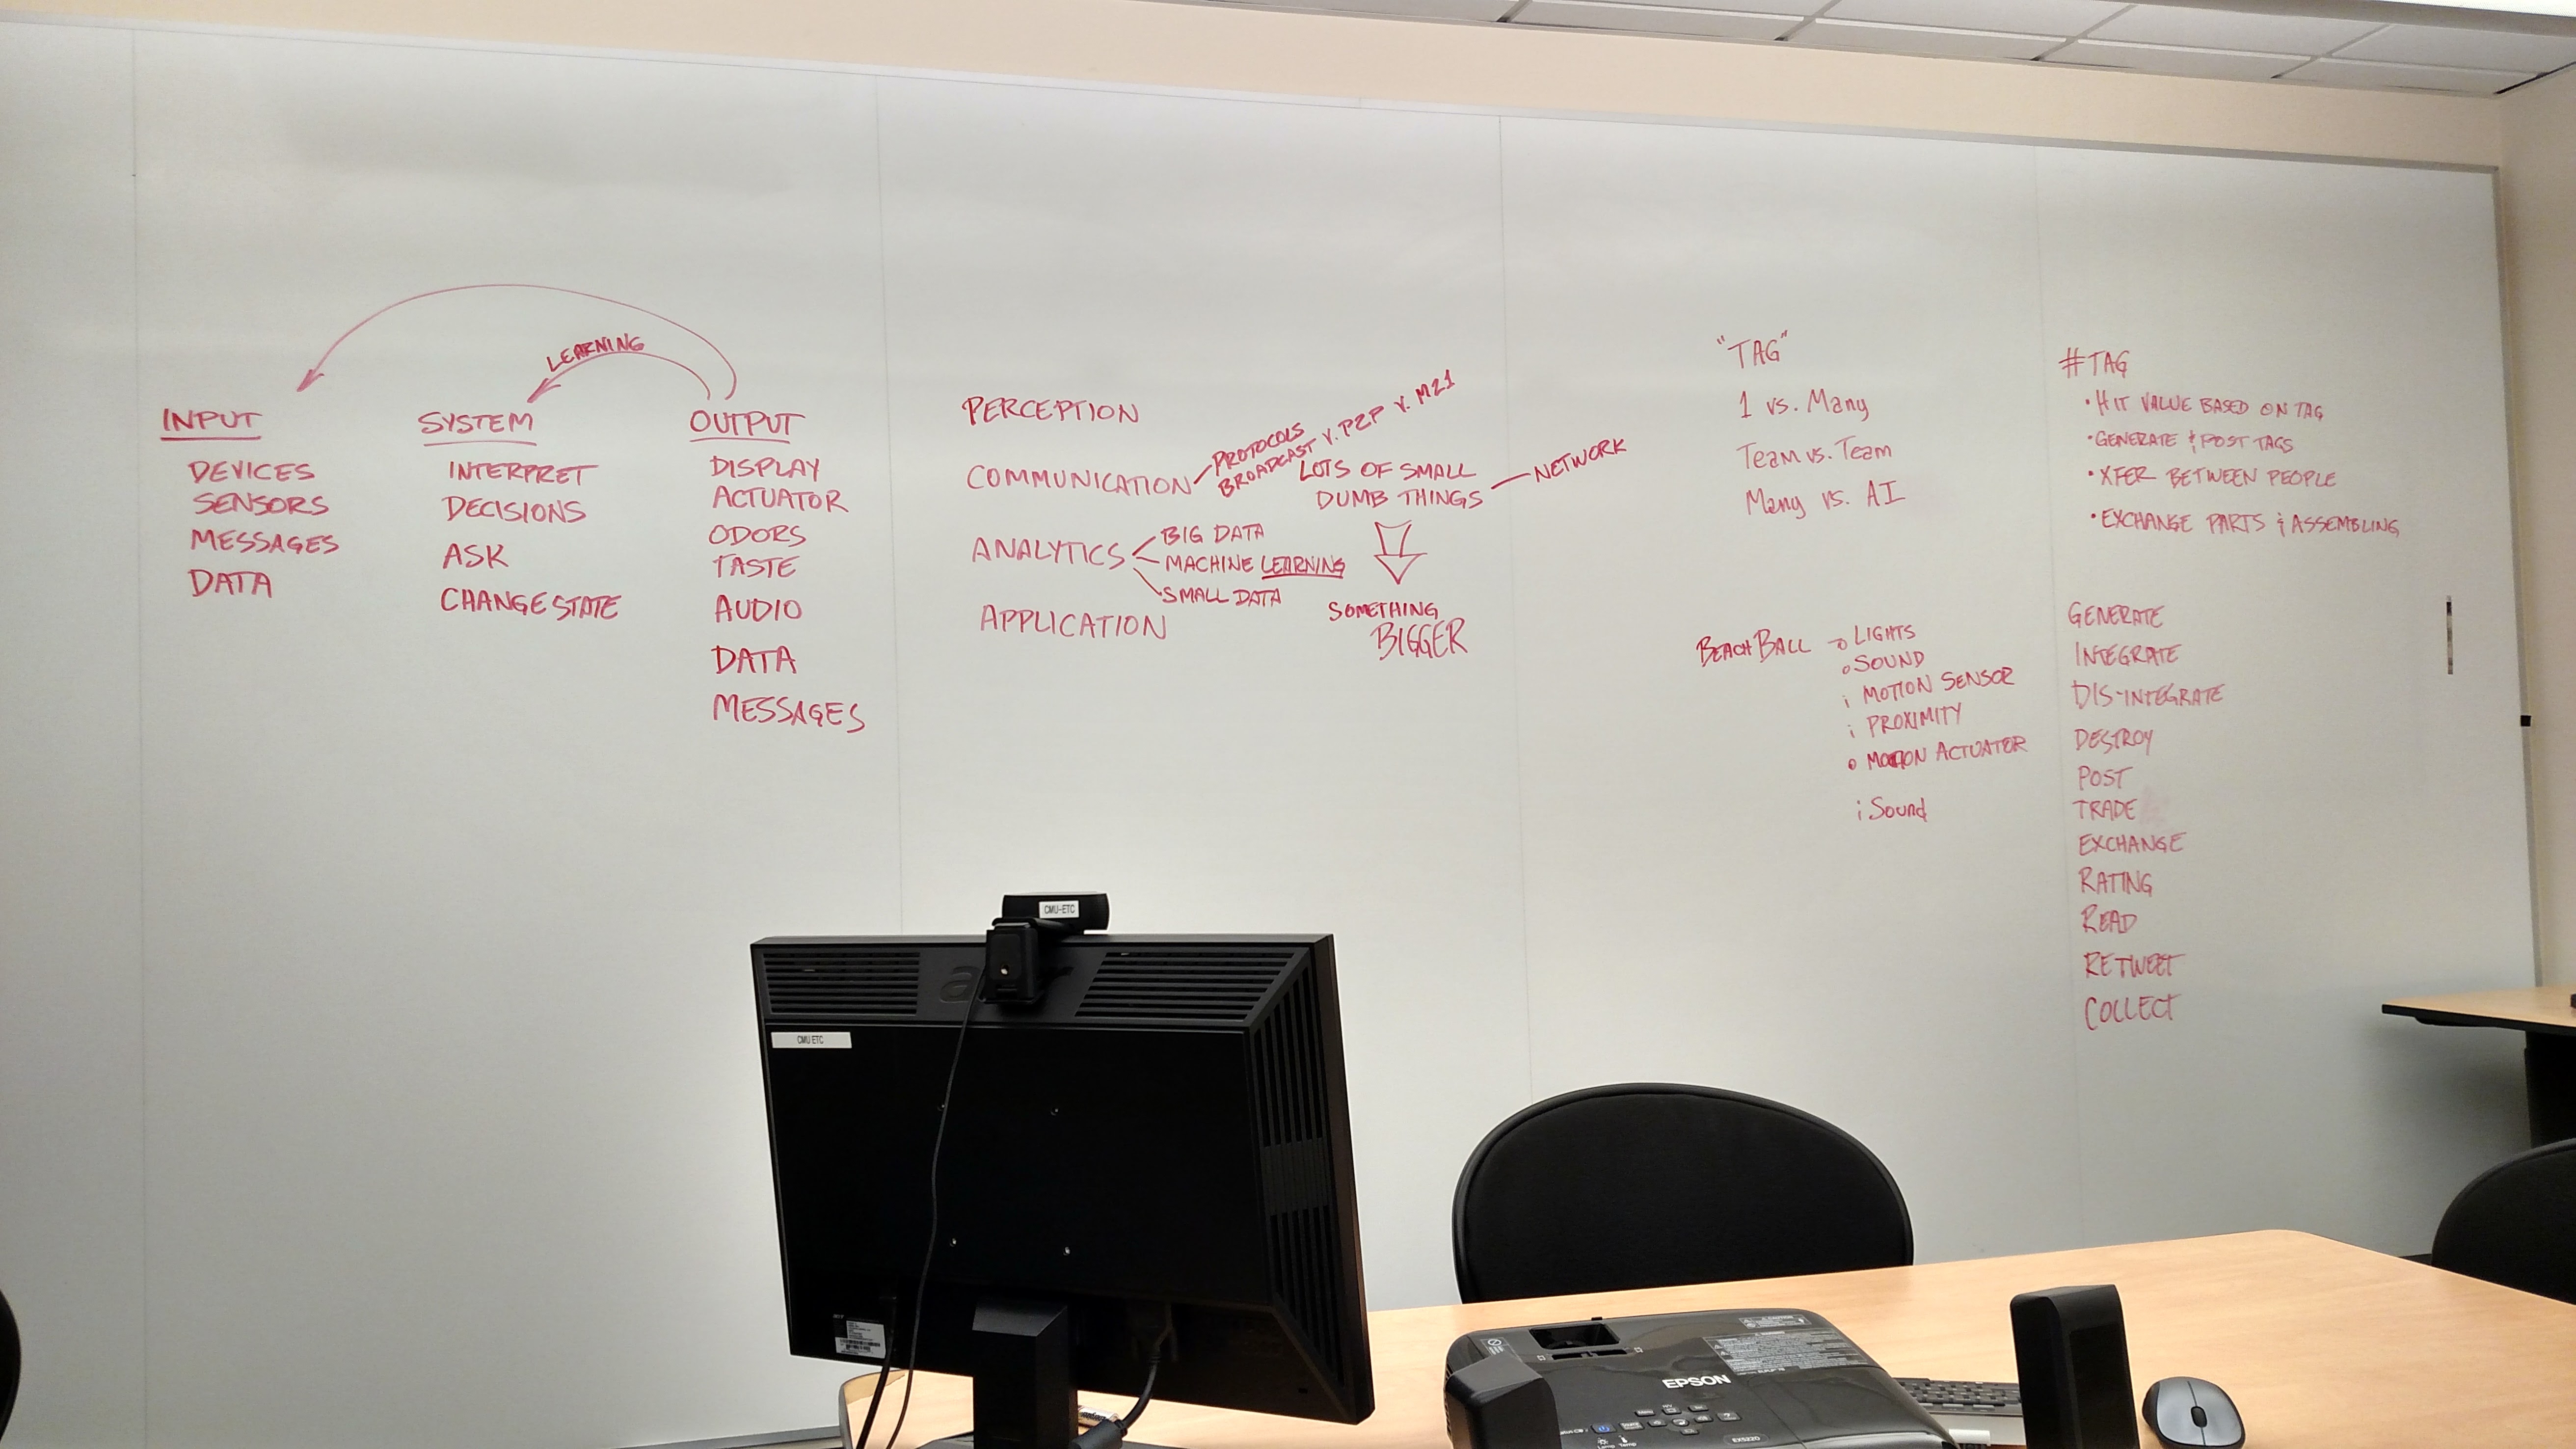 LEARNING
INPUT
DEVICES
SENSORS
MESSAGES
DATA
SYSTEM
INTERPRET
DECISIONS
ASK
CHANGE STATE
OUTPUT
DISPLAY
ACTUATOR
ODORS
TASTE
AUDIO
DATA
MESSAGES
PERCEPTION
COMMUNICATION
PROTOCOLS
BROADCAST v. P2P v. M21
ANALYTICS
BIG DATA
MACHINE LEARNING
SMALL DATA
APPLICATION
LOTS OF SMALL
DUMB THINGS
NETWORK
SOMETHING
BIGGER
"TAG"
1 vs. Many
Team vs. Team
Many vs. AI
BEACH BALL
o LIGHTS
o SOUND
i MOTION SENSOR
i PROXIMITY
o MOTION ACTUATOR
i Sound
#TAG
• HIT VALUE BASED ON TAG
• GENERATE & POST TAGS
• XFER BETWEEN PEOPLE
• EXCHANGE PARTS & ASSEMBLING
GENERATE
INTEGRATE
DIS-INTEGRATE
DESTROY
POST
TRADE
EXCHANGE
RATING
READ
RETWEET
COLLECT
CMU-ETC
CMU ETC
EPSON
EX5220